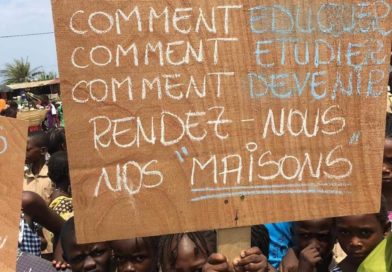 COMMENT EDUQUER
COMMENT ETUDIER
COMMENT DEVENIR
RENDEZ-NOUS
NOS "MAISONS"